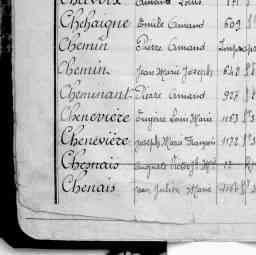 Chehaigne Emile Amand 609
Chemin Pierre Amand
Chemin Jean Marie Joseph 642
Cheminant Pierre Amand 928
Chenevière Eugène Louis Marie 1163
Chenevière Joseph Marie François 1172
Chesnais Auguste Victor
Chenais Jean Julien Marie